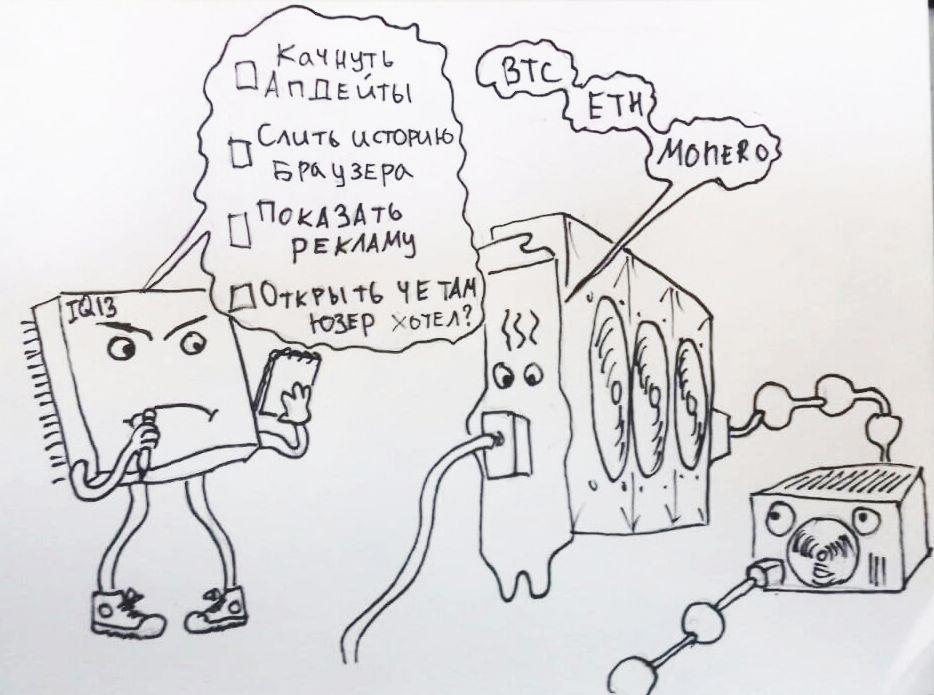 Качнуть
Апдейты
Слить историю
браузера
Показать
рекламу
Открыть че там
юзер хотел?
BTC
ETH
MONERO
IQ13